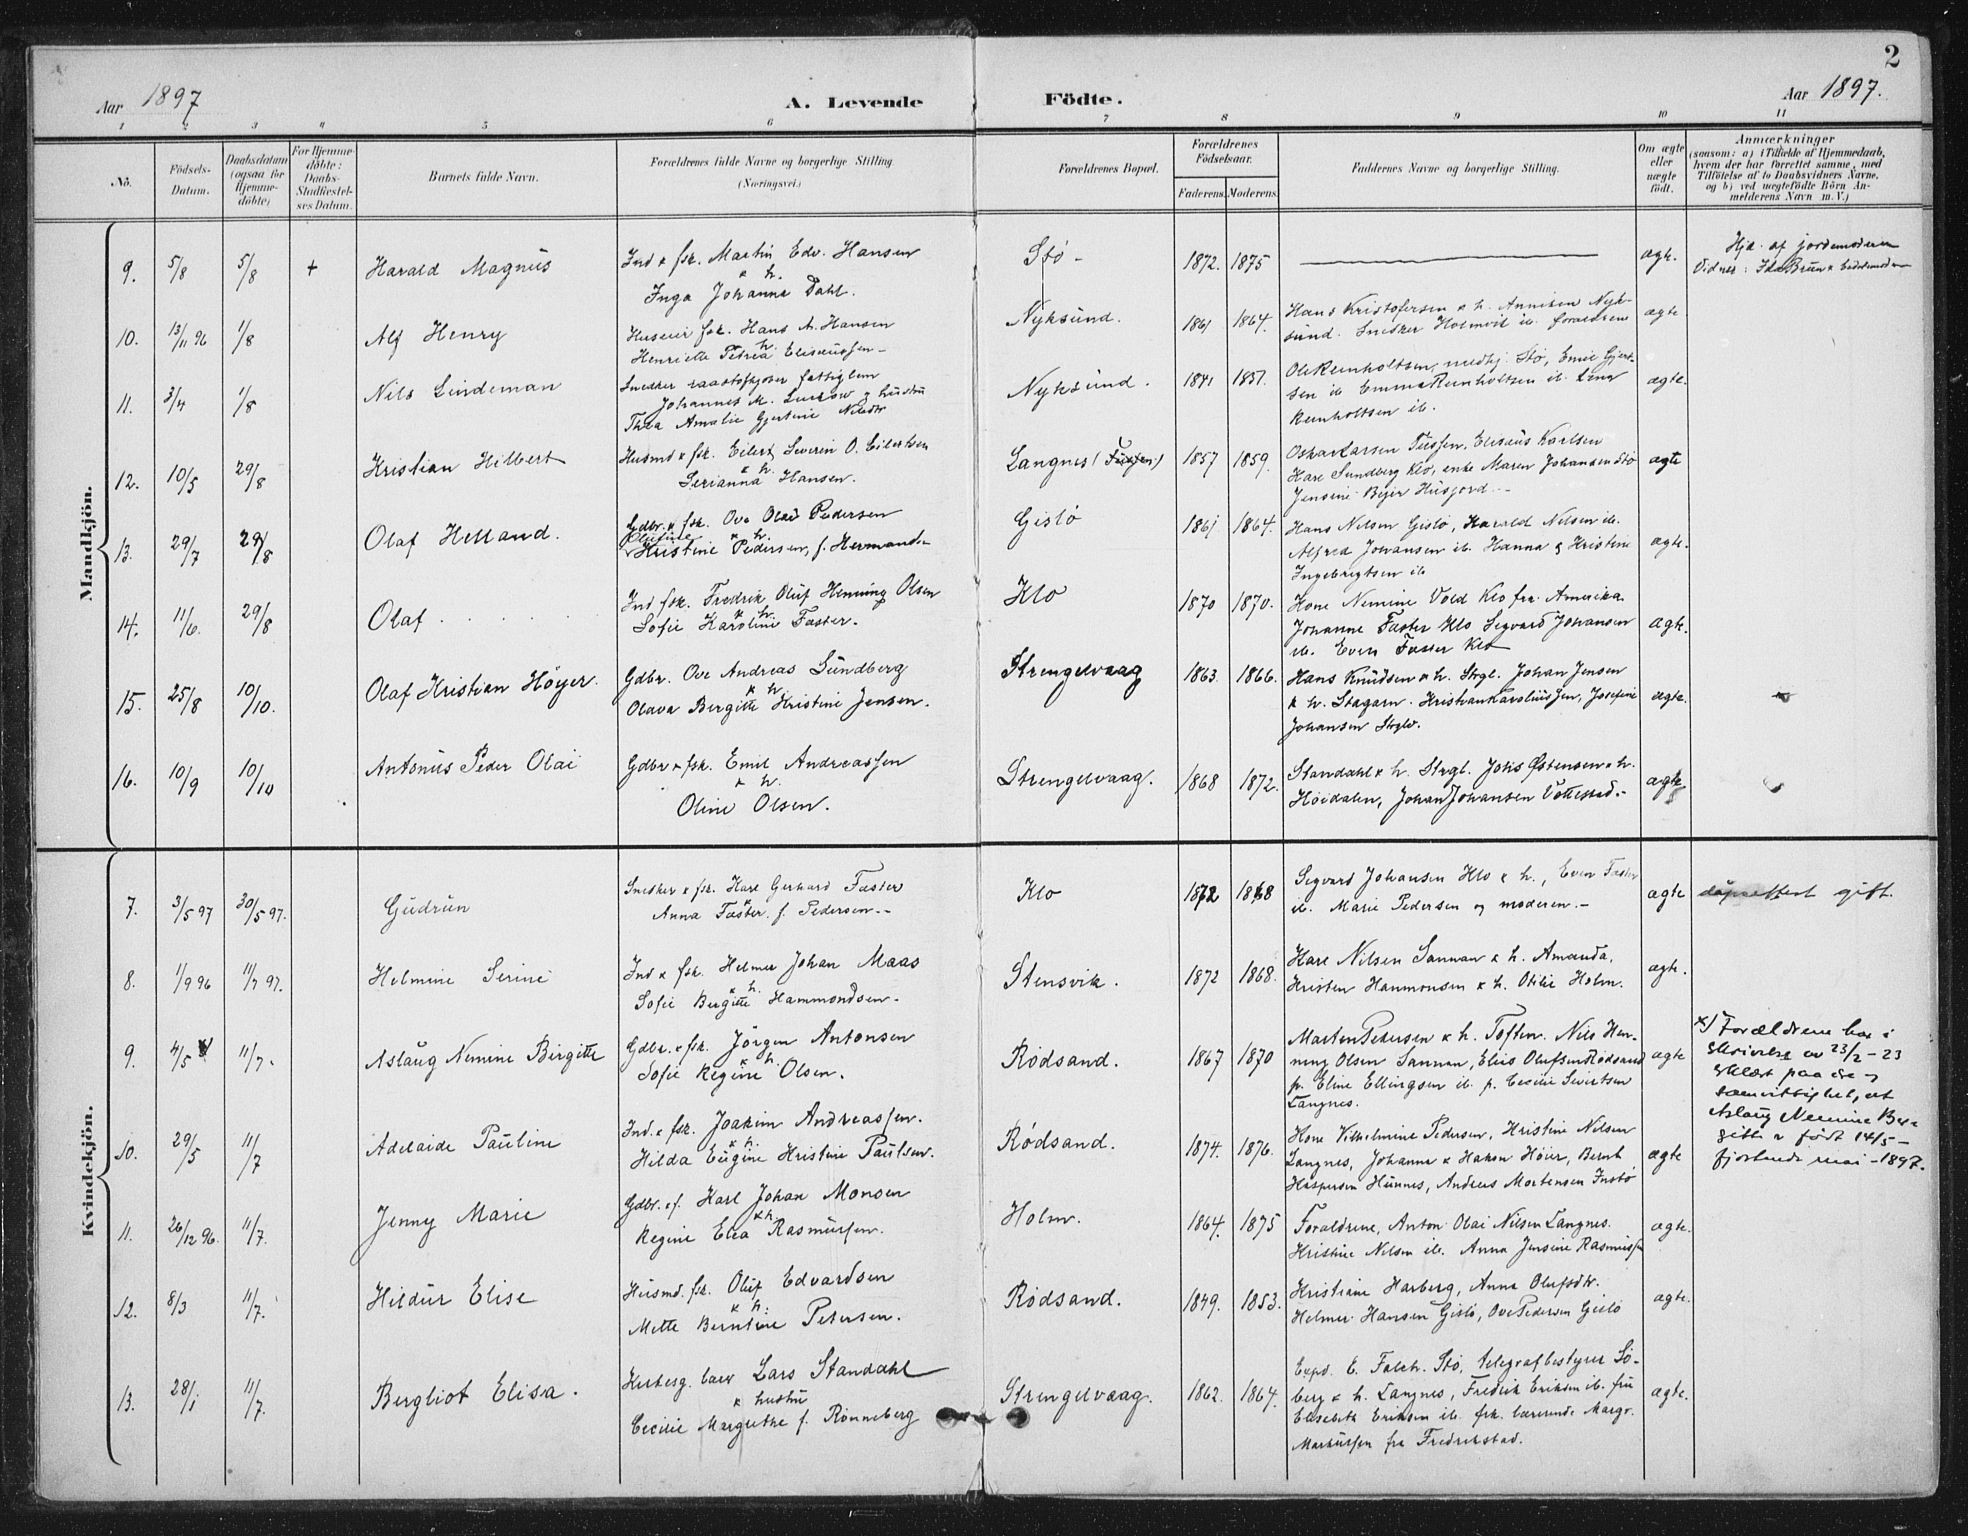 2
Aar 1897
A. Levende Födte.
Aar 1897.
1 2 3 4 5 6 7 8 9 10 11
No.
Födsels-Datum.
Daabsdatum (ogsaa for Hjemme-döbte)
For Hjemme-döbte: Daabs-Stadfæstel-ses Datum.
Barnets fulde Navn.
Forældrenes fulde Navne og borgerlige Stilling. (Næringsvei.)
Forældrenes Bopæl.
Forældrenes Födselsaar.
Faderens. Moderens.
Faddernes Navne og borgerlige Stilling.
Om ægte eller uægte født.
Anmærkninger
(saasom: a) i Tilfælde af Hjemmedaab,
hvem der har forrettet samme, med
Tilföielse af to Daabsvidners Navne,
og b) ved uægtefödte Börn An-
melderens Navn m. V.)
Mandkjön.
9. 5/8 5/8 + Harald Magnus
Ind & fsk. Martin Edv. Hansen
& h.
Inga Johanna Dahl.
Stö - 1872. 1875 ægte.
Hjd. af jordemoderen
Vidner: Ida Brun & bedstemoder
10. 13/11 96 1/8 Alf Henry
Huseier fsk. Hans A. Hansen
& h.
Henriette Petrea Eliseussen -
Nyksund. 1861 1864.
Hans Kristofersen & h. Annisen Nyk-
sund. Snedker Holmvik ib. forældrene
ægte
11. 3/4 1/8 Nils Lindeman
Snedker fattiglem
Johannes M. & hustru
Thea Amalie Gjertine Nilsdtr
Nyksund. 1841 1857.
Ole Reinholtsen, Stö, Emil Gjert-
sen ib Emma Reinholtsen ib. Lina
Reinholtsen ib.
ægte.
12. 10/5 29/8 Kristian Hilbert
Husmd & fsk. Eilert Severin O. Eilertsen
& h.
Serianna Hansen.
Langnes (Tussen) 1857 1859.
Oskar Larsen Tussen, Eliseus Karlsen
Kare Sundberg Klo, enke Maren Johansen Stö
Jensine Beyer Husjord. -
ægte
13. 29/7 29/8 Olaf Helland.
Gdbr. & fsk. Ove Olai Pedersen
Olufine & h.
Kristine Pedersen, f. Hermands
Gislö 1861 1864.
Hans Nilsen Gislö, Harald Nilsen ib.
Alfred Johansen ib. Hanna & Kristine
Ingebrigtsen ib
ægte.
14. 11/6. 29/8 Olaf
Ind fsk. Fredrik Oluf Henning Olsen
& h.
Sofie Karoline Faster.
Klo 1870 1870.
Kone Nemine Vold Klo fra Amerika
Johanne Faster Klo Segvard Johansen
ib. Even Faster Klo
ægte.
15. 25/8 10/10. Olaf Kristian Höyer.
Gdbr. Ove Andreas Sundberg
& h.
Olava Bergitte Kristine Jensen.
Strengelvaag 1863. 1866.
Hans Knudsen & h. Strgl. Johan Jensen
& h. Skagarn. Kristian Karolius Jen, Josefine
Johansen Strglv.
ægte.
16. 10/9 10/10 Antonus Peder Olai
Gdbr & fsk. Emil Andreassen
& h.
Oline Olsen.
Strengelvaag. 1868 1872.
Standahl & h. Strgl. Johs Østensen & h.
Höidalen, Johan Johansen Vottestad. -
ægte
Kvindekjön.
7. 3/5 97 30/5 97. Gudrun
Snedker & fsk. Karl Gerhard Faster
&
Anna Faster. f. Pedersen. -
Klo 1872 1868
Segvard Johansen Klo & h., Even Faster
ib. Marie Pedersen og moderen. -
ægte dåpsattest gift.
8. 1/9 96 11/7 97. Helmine Serine
Ind & fsk. Helmer Johan Maas
& h.
Sofie Bergitte Hammondsen -
Stensvik. 1872 1868.
Kare Nilsen Sannan & h. Amanda,
Kristen Hanmonsen & h. Otilie Holm.
ægte.
9. 4/5 x) 11/7. Aslaug Nemine Birgitte
Gdbr. & fsk. Jörgen Antonsen
& h.
Sofie Regine Olsen.
Rödsand. 1867 1870
Morten Pedersen & h. Toften. Nils Hen-
ning Olsen Sannan, Elias Olufsen Rödsand
p. Eline Ellingsen ib. p. Cecilie Sivertsen
Langnes.
ægte
x) Forældrene har i
skrivelse av 23/2 - 23
erklært paa ære og
samvittighet, at
Aslaug Nemine Bir-
gitte er født 14/5 -
fjortende mai - 1897.
10. 29/5 11/7 Adelaide Pauline
Ind. & fsk. Joakim Andreassen.
& h.
Hilda Eugine Kristine Paulsen.
Rödsand. 1874. 1876.
Kone Vilhelmine Pedersen, Kristine Nilsen
Langnes, Johanna & Hakon Höier, Bernt
Kaspersen Hunnes, Andreas Mortensen Instö
ægte
11. 26/12 96. 11/7. Jenny Marie
Gdbr. & f. Karl Johan Monsen
& h.
Regine Elea Rasmussen.
Holm. 1864. 1875
Forældrene, Anton Olai Nilsen Langnes.
Kristine Nilsen ib. Anna Jensine Rasmussen
ægte.
12. 8/3 11/7. Hildur Elise
Husmd. fsk. Oluf Edvardsen
& h.
Mette Berntine Petersen.
Rödsand. 1849. 1853.
Kristiane Harberg, Anna Olufsdtr.
Helmer Hansen Gislö, Ove Pedersen Gislö
ægte.
13. 28/1 11/7. Bergliot Elisa.
Lars Standahl
& hustru
Cecilie Margrethe f. Rönneberg
Strengelvaag. 1862. 1864.
Expd. E. Falch. Stö, telegrafbestyrer Sö-
berg & h. Langnes, Fredrik Eriksen ib. fru
Elisabeth Eriksen ib. frk. lærerinde Margr.
Markussen fra Fredrikstad.
ægte.